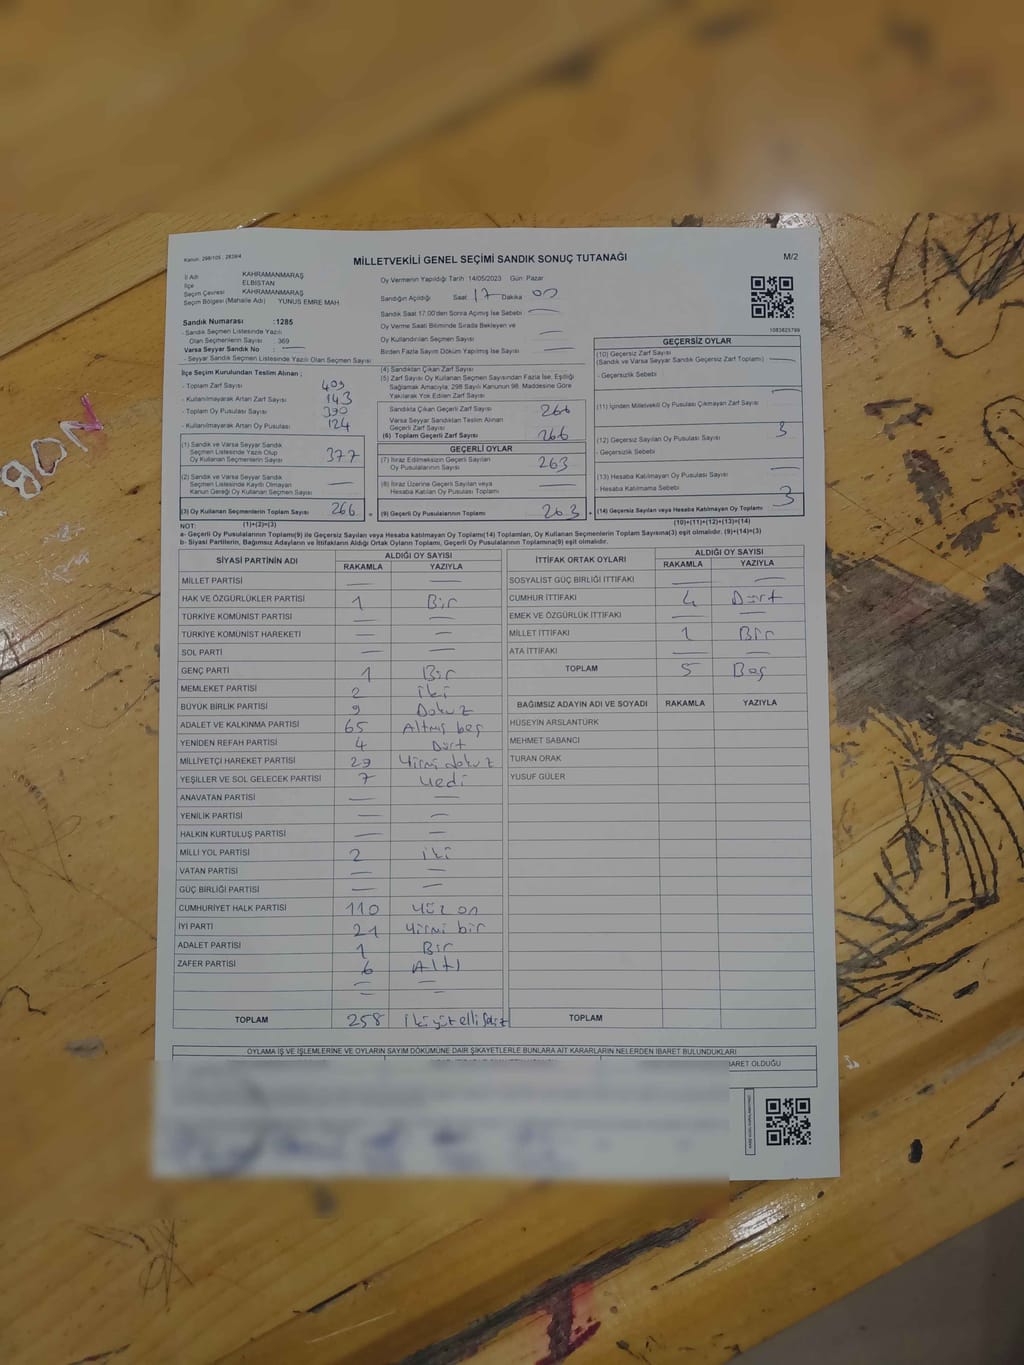 Kanun: 298/105 ; 2839/4
MİLLETVEKİLİ GENEL SEÇİMİ SANDIK SONUÇ TUTANAĞI
M/2
İl Adı KAHRAMANMARAŞ
İlçe ELBİSTAN
Seçim Çevresi KAHRAMANMARAŞ
Seçim Bölgesi (Mahalle Adı) YUNUS EMRE MAH
Sandık Numarası :1285
- Sandık Seçmen Listesinde Yazılı
Olan Seçmenlerin Sayısı : 369
Varsa Seyyar Sandık No : —
- Seyyar Sandık Seçmen Listesinde Yazılı Olan Seçmen Sayısı
Oy Vermenin Yapıldığı Tarih 14/05/2023 Gün Pazar
Sandığın Açıldığı Saat 17 Dakika 00
Sandık Saat 17.00'den Sonra Açılmış İse Sebebi —
Oy Verme Saati Bitiminde Sırada Bekleyen ve
Oy Kullandırılan Seçmen Sayısı —
Birden Fazla Sayım Döküm Yapılmış İse Sayısı —
1083625799
İlçe Seçim Kurulundan Teslim Alınan ;
- Toplam Zarf Sayısı 409
- Kullanılmayarak Artan Zarf Sayısı 143
- Toplam Oy Pusulası Sayısı 390
- Kullanılmayarak Artan Oy Pusulası 124
(1) Sandık ve Varsa Seyyar Sandık
Seçmen Listesinde Yazılı Olup
Oy Kullanan Seçmenlerin Sayısı 377
(2) Sandık ve Varsa Seyyar Sandık
Seçmen Listesinde Kayıtlı Olmayan
Kanun Gereği Oy Kullanan Seçmen Sayısı —
(3) Oy Kullanan Seçmenlerin Toplam Sayısı 266
(1)+(2)=(3)
(4) Sandıktan Çıkan Zarf Sayısı
(5) Zarf Sayısı Oy Kullanan Seçmen Sayısından Fazla İse, Eşitliği
Sağlamak Amacıyla, 298 Sayılı Kanunun 98. Maddesine Göre
Yakılarak Yok Edilen Zarf Sayısı
Sandıkta Çıkan Geçerli Zarf Sayısı 266
Varsa Seyyar Sandıktan Teslim Alınan
Geçerli Zarf Sayısı —
(6) Toplam Geçerli Zarf Sayısı 266
GEÇERLİ OYLAR
(7) İtiraz Edilmeksizin Geçerli Sayılan
Oy Pusulalarının Sayısı 263
(8) İtiraz Üzerine Geçerli Sayılan veya
Hesaba Katılan Oy Pusulası Toplamı —
= (9) Geçerli Oy Pusulalarının Toplamı 263
GEÇERSİZ OYLAR
(10) Geçersiz Zarf Sayısı
(Sandık ve Varsa Seyyar Sandık Geçersiz Zarf Toplamı) —
- Geçersizlik Sebebi
(11) İçinden Milletvekili Oy Pusulası Çıkmayan Zarf Sayısı —
(12) Geçersiz Sayılan Oy Pusulası Sayısı 3
- Geçersizlik Sebebi
(13) Hesaba Katılmayan Oy Pusulası Sayısı —
Hesaba Katılmama Sebebi
+ (14) Geçersiz Sayılan veya Hesaba Katılmayan Oy Toplamı 3
(10)+(11)+(12)+(13)=(14)
NOT:
a- Geçerli Oy Pusulalarının Toplamı(9) ile Geçersiz Sayılan veya Hesaba katılmayan Oy Toplamı(14) Toplamları, Oy Kullanan Seçmenlerin Toplam Sayısına(3) eşit olmalıdır. (9)+(14)=(3)
b- Siyasi Partilerin, Bağımsız Adayların ve İttifakların Aldığı Ortak Oyların Toplamı, Geçerli Oy Pusulalarının Toplamına(9) eşit olmalıdır.
SİYASİ PARTİNİN ADI ALDIĞI OY SAYISI
RAKAMLA YAZIYLA
MİLLET PARTİSİ — —
HAK VE ÖZGÜRLÜKLER PARTİSİ 1 Bir
TÜRKİYE KOMÜNİST PARTİSİ — —
TÜRKİYE KOMÜNİST HAREKETİ — —
SOL PARTİ — —
GENÇ PARTİ 1 Bir
MEMLEKET PARTİSİ 2 iki
BÜYÜK BİRLİK PARTİSİ 9 Dokuz
ADALET VE KALKINMA PARTİSİ 65 Altmış beş
YENİDEN REFAH PARTİSİ 4 Dört
MİLLİYETÇİ HAREKET PARTİSİ 29 Yirmi dokuz
YEŞİLLER VE SOL GELECEK PARTİSİ 7 Yedi
ANAVATAN PARTİSİ — —
YENİLİK PARTİSİ — —
HALKIN KURTULUŞ PARTİSİ — —
MİLLİ YOL PARTİSİ 2 iki
VATAN PARTİSİ — —
GÜÇ BİRLİĞİ PARTİSİ — —
CUMHURİYET HALK PARTİSİ 110 Yüz on
İYİ PARTİ 21 Yirmi bir
ADALET PARTİSİ 1 Bir
ZAFER PARTİSİ 6 Altı
— —
— —
TOPLAM 258 iki yüz elli sekiz
İTTİFAK ORTAK OYLARI ALDIĞI OY SAYISI
RAKAMLA YAZIYLA
SOSYALİST GÜÇ BİRLİĞİ İTTİFAKI — —
CUMHUR İTTİFAKI 4 Dört
EMEK VE ÖZGÜRLÜK İTTİFAKI — —
MİLLET İTTİFAKI 1 Bir
ATA İTTİFAKI — —
TOPLAM 5 Beş
BAĞIMSIZ ADAYIN ADI VE SOYADI RAKAMLA YAZIYLA
HÜSEYİN ARSLANTÜRK
MEHMET SABANCI
TURAN ORAK
YUSUF GÜLER
TOPLAM
OYLAMA İŞ VE İŞLEMLERİNE VE OYLARIN SAYIM DÖKÜMÜNE DAİR ŞİKAYETLERLE BUNLARA AİT KARARLARIN NELERDEN İBARET BULUNDUKLARI
BARET OLDUĞU